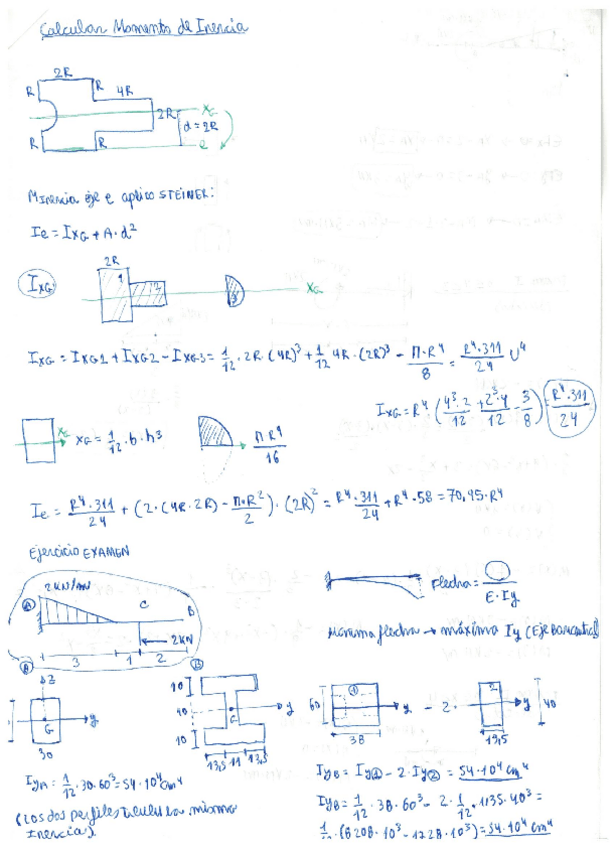 Calcular Momento de Inercia
2R
R
R
4R
2R
d = 2R
XG
e
R
R
Minercia eje e aplico STEINER:
Ie = IXG + A·d²
IXG
2R
1
2
3
XG
IXG = IXG1 + IXG2 − IXG3 = 1/12 · 2R · (4R)³ + 1/12 4R · (2R)³ − π·R⁴/8 = R⁴·311/24 U⁴
IXG = R⁴ · (4³·2/12 + 2³·4/12 − 3/8) = R⁴·311/24
XG
XG = 1/12 · b · h³
πR⁴/16
Ie = R⁴·311/24 + (2·(4R·2R) − π·R²/2) · (2R)² = R⁴·311/24 + R⁴·58 = 70,95·R⁴
Ejercicio EXAMEN
2KN/m
A
C
B
2KN
3
1
2
Flecha = ◯/E·Iy
máxima Iy (Eje Baricentrico)
A
z
y
G
30
B
10
40
10
y
G
13,5
11
13,5
60
1
y
38
− 2·
2
y
40
13,5
IyA = 1/12 · 30·60³ = 54·10⁴ cm⁴
(Los dos perfiles
misma
Inercia)
IyB = Iy① − 2·Iy② = 54·10⁴ cm⁴
IyB = 1/12 · 38·60³ − 2· 1/12 · 13,5·40³ =
1/12 · (8208·10³ − 1728·10³) = 54·10⁴ cm⁴